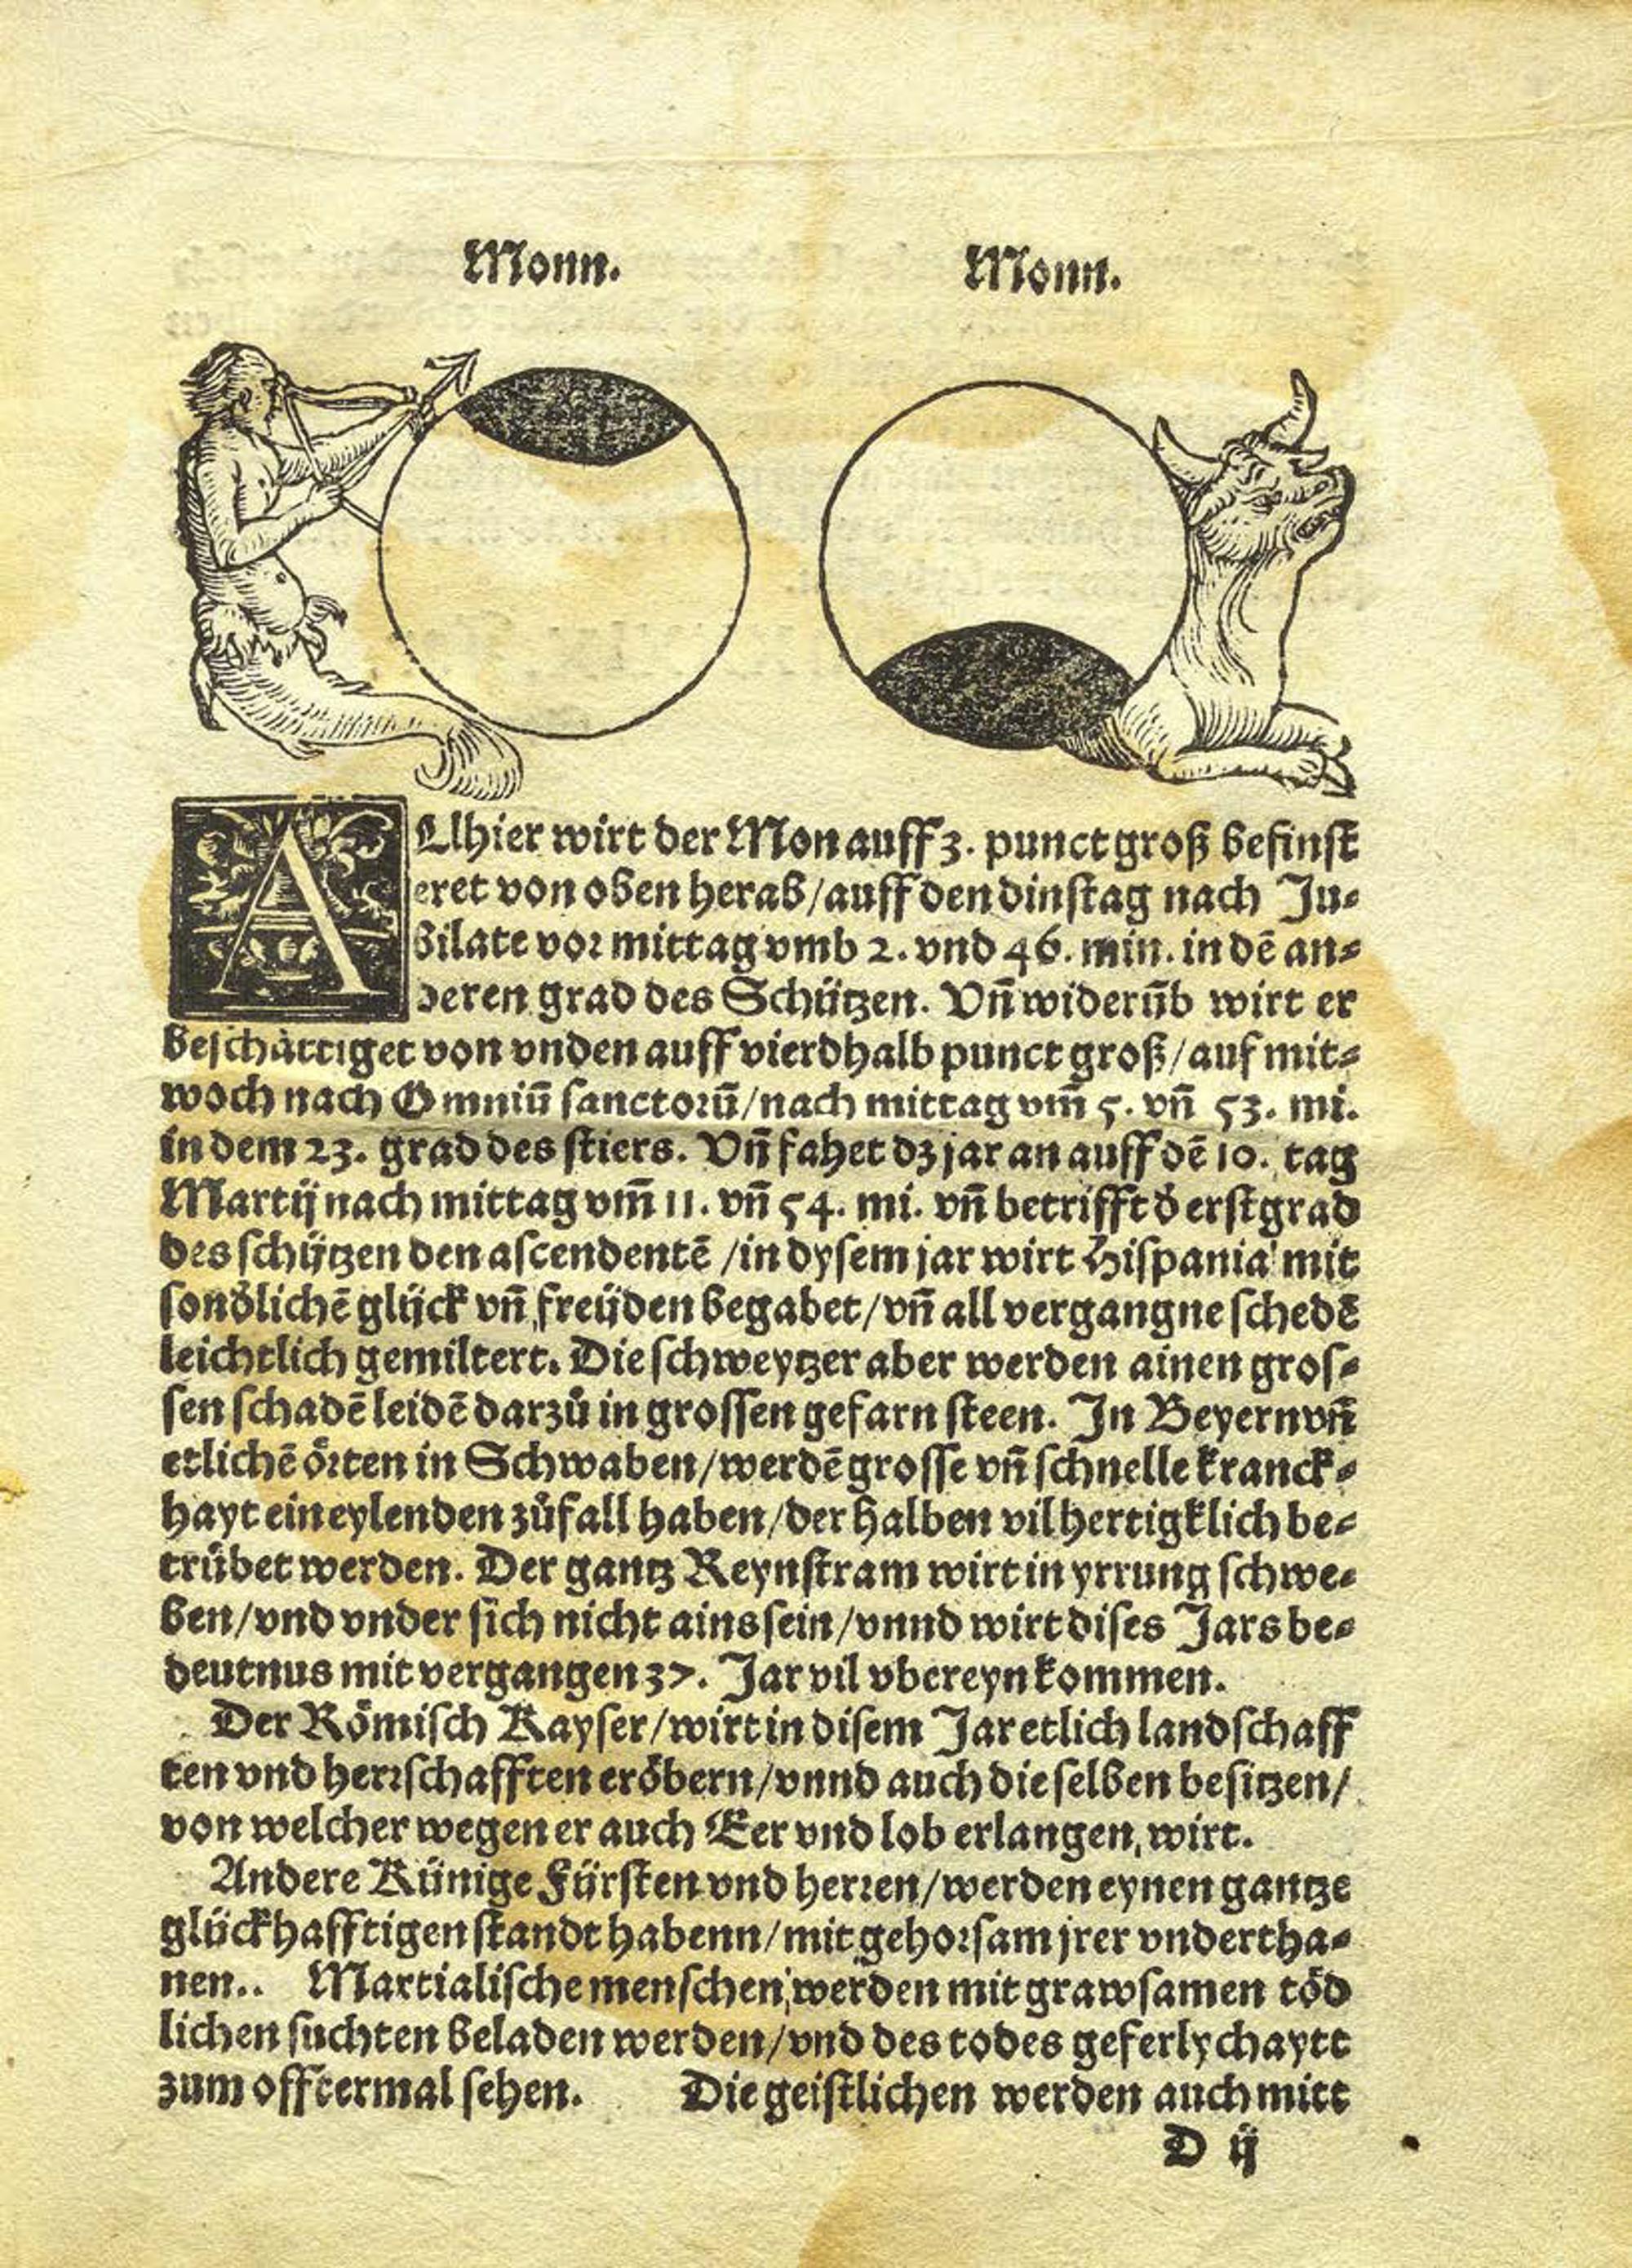 Monn. Monn.
ALlhier wirt der Mon auff 3. punct groß befinst
eret von oben herab/auff den dinstag nach Ju⸗
bilate vor mittag vmb 2. vnd 46. min. in dē an⸗
deren grad des Schützen. Vn̄ widerūb wirt er
beschåttiget von vnden auff vierdhalb punct groß/auf mit⸗
woch nach Omniū sanctorū/nach mittag vm̄ 5. vn̄ 53. mi.
in dem 23. grad des stiers. Vn̄ fahet dz jar an auff dē 10. tag
Martij nach mittag vm̄ 11. vn̄ 54. mi. vn̄ betrifft d̓ erst grad
des schützen den ascendentē /in dysem jar wirt Hispania mit
sond̓lichē glück vn̄ freüden begabet/vn̄ all vergangne schedē
leichtlich gemiltert. Die schweytzer aber werden ainen gros⸗
sen schadē leidē darzů in grossen gefarn steen. In Beyern vn̄
etlichē oͤrten in Schwaben/werdē grosse vn̄ schnelle kranck⸗
hayt ein eylenden zůfall haben/der halben vil hertigklich be⸗
truͤbet werden. Der gantz Reynstram wirt in yrrung schwe⸗
ben/vnd vnder sich nicht ains sein/vnnd wirt dises Jars be⸗
deutnus mit vergangen 37. Jar vil vbereyn kommen.
Der Roͤmisch Kayser/wirt in disem Jar etlich landschaff
ten vnd herrschafften eroͤbern/vnnd auch die selben besitzen/
von welcher wegen er auch Eer vnd lob erlangen wirt.
Andere Künige Fürsten vnd herren/werden eynen gantze
glückhafftigen standt habenn/mit gehorsam jrer vndertha⸗
nen.. Martialische menschen werden mit grawsamen toͤd
lichen suchten beladen werden/vnd des todes geferlychaytt
zum offtermal sehen. Die geistlichen werden auch mitt
D ij